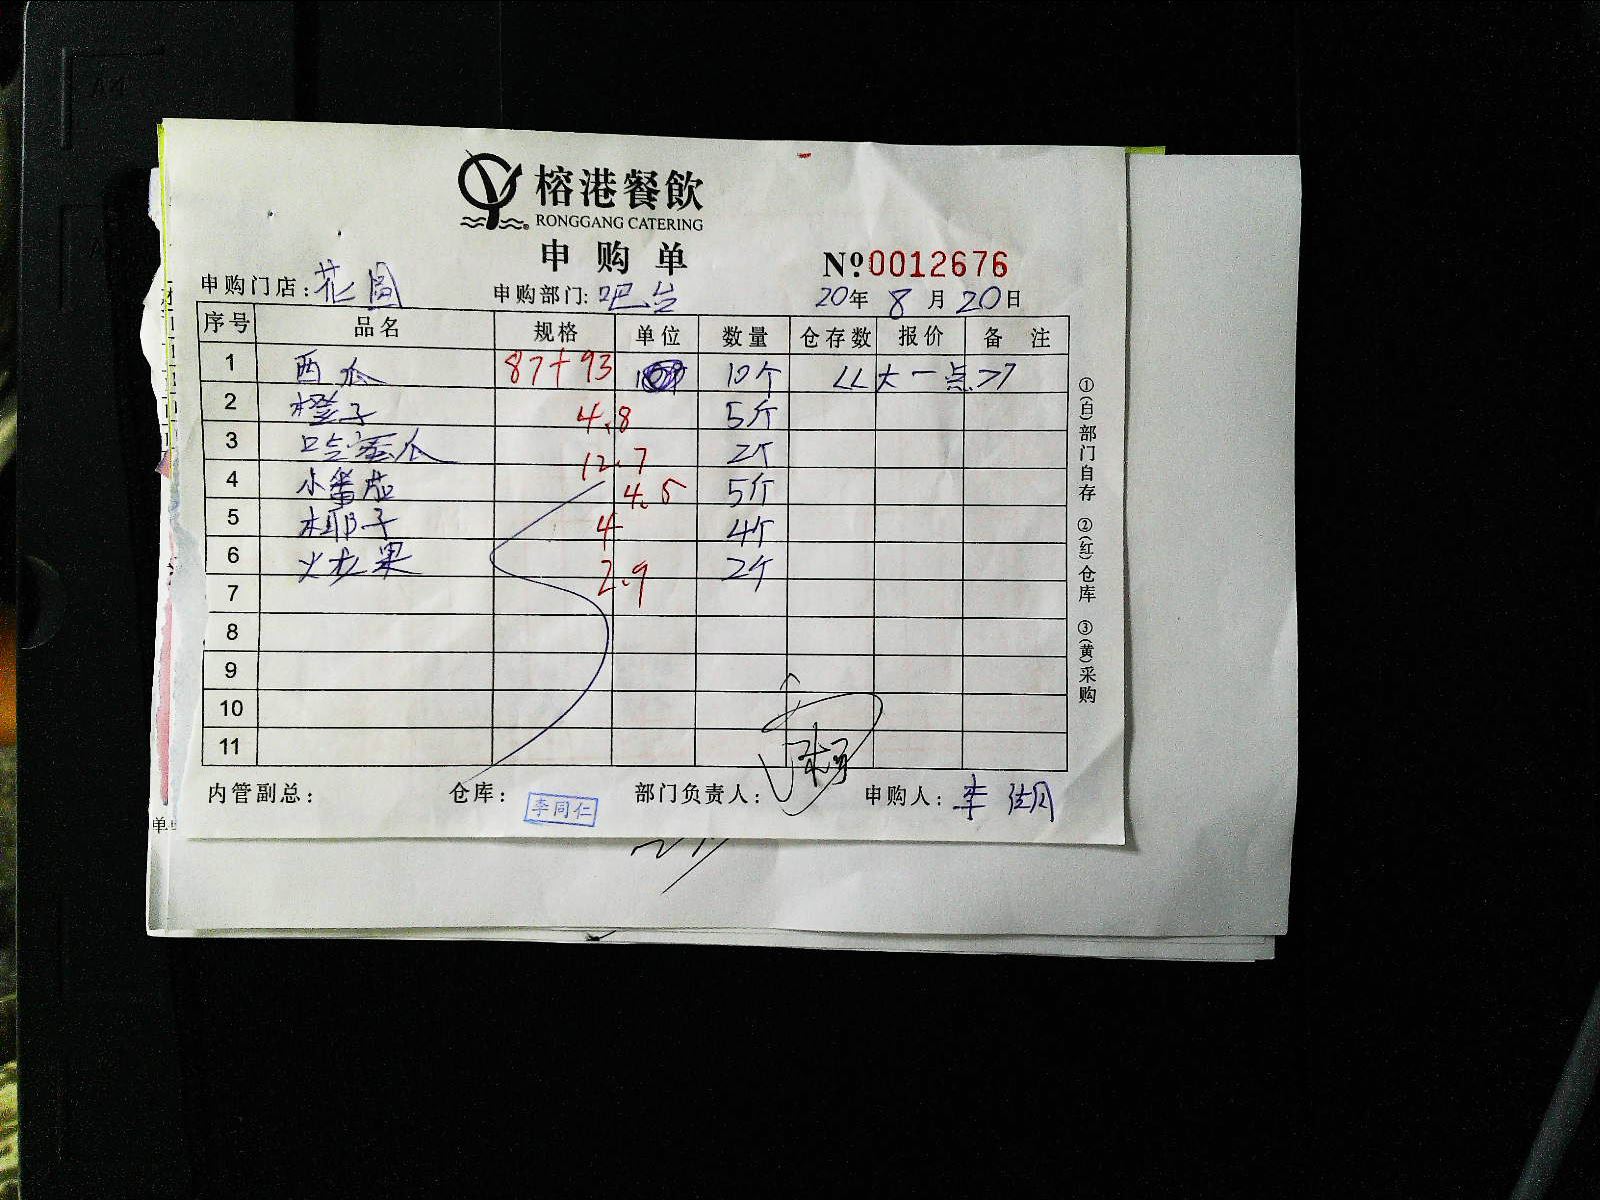 榕港餐飲
RONGGANG CATERING
申购单
№0012676
申购门店:花园 申购部门:吧台 20年8月20日
序号 品名 规格 单位 数量 仓存数 报价 备注
1 西瓜 87+93 10个 <<大一点>>
2 橙子 4.8 5斤
3 哈密瓜 12.7 2个
4 小番茄 4.5 5斤
5 椰子 4 4个
6 火龙果 2.9 2个
7
8
9
10
11
内管副总: 仓库: 李同仁 部门负责人: 申购人:李
①(白)部门自存 ②(红)仓库 ③(黄)采购